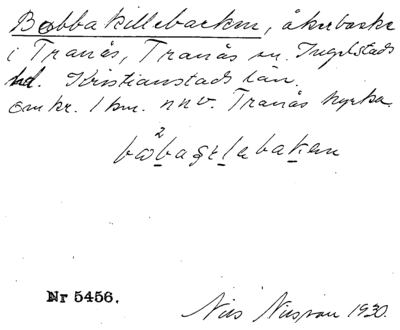 Bobbakillebacken, åkerbacke
i Tranås, Tranås sn. Ingelstads
hd. Kristianstads län.
Omkr. 1 km. nnv. Tranås kyrka.
Nr 5456.
Nils Nilsson 1930.